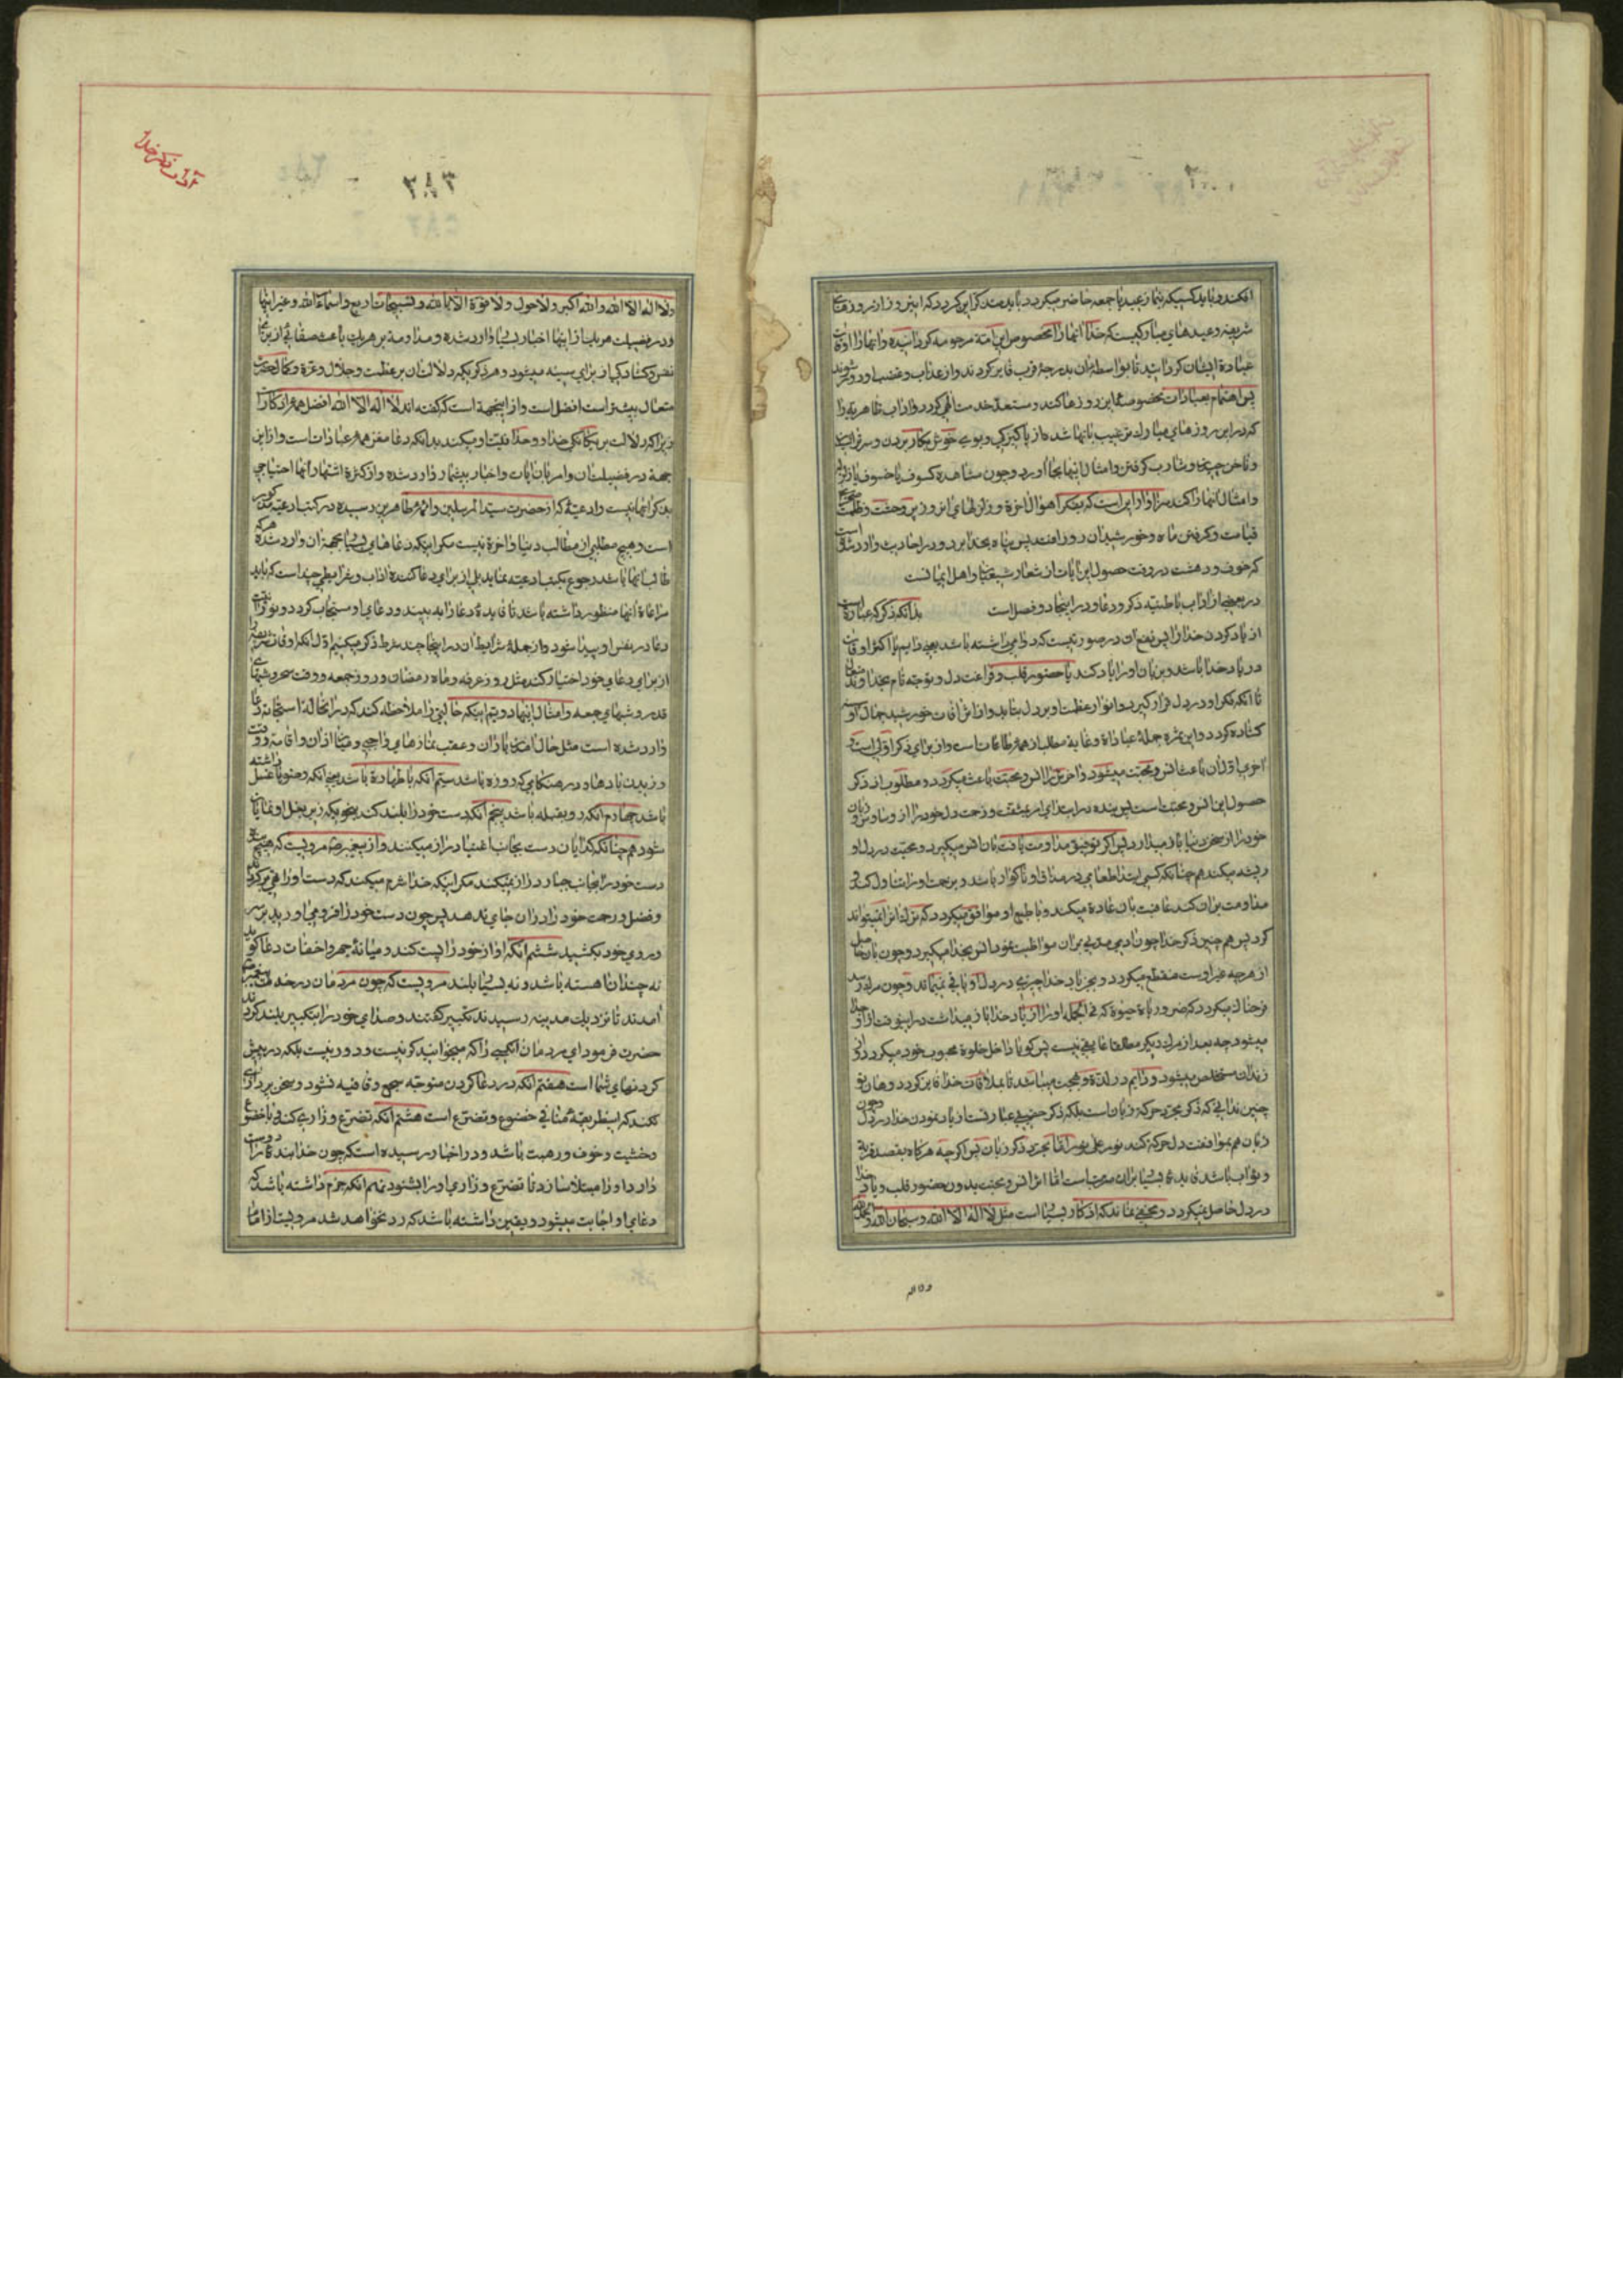 افکند و باید کسیکه بنماز عید یا جمعه حاضر میگردد باید متذکر این گردد که این روز از روزهای
شریفه و عیدهای مبارکیست که خدا انها را مخصوص این امة مرحومه گردانیده و انها را اوقات
عبادة ایشان گردانید تا بواسطه ان بدرجهٔ قرب فایز گردند و از عذاب و غضب او دور شوند
پس اهتمام بعبادات مخصوصه این روزها کند و مستعد خدمت الهی گردد و اداب ظاهریه را
که در این روزهای مبارک ترغیب بانها شده از پاکیزگی و بوی خوش بکار بردن و سر تراشیدن
و ناخن چیدن و شارب گرفتن و امثال اینها بجا اورد و چون مشاهده کسوف یا خسوف یا زلزله
و امثال انها را کند سزاوار این است که بفکر اهوال اخرة و زلزلهای ان روز پر وحشت و ظلمت
قیامت و گرفتن ماه و خورشید ان روز افتد پس پناه بخدا برد و در احادیث وارد شده است
که خوف و دهشت در وقت حصول این ایات از شعار شیعیان و اهل ایمانست
در بعضی از اداب باطنیه ذکر و دعا و در اینجا دو فصل است بدانکه ذکر که عبارة است
از یاد کردن خدا از این نفع ان در صورتیست که دوامی داشته باشد یعنی دایم یا اکثر اوقات
در یاد خدا باشد و بزبان او را یاد کند با حضور قلب و فراغت دل و توجه تام بخداوند متعال
تا انکه فکر او در دل قرار گیرد و انوار عظمت او بر دل بتابد و از اشراقات خورشید جمال او سینه
گشاده گردد و این ثمره جملهٔ عبادات و غایة مطلب از همه طاعاتست و از برای ذکر اولی است و
اخری اول ان باعث انس و محبت میشود و اخرین را انس و محبت باعث میگردد و مطلوب از ذکر
حصول این انس و محبت است پس بنده در ابتدای امر بمشقت و زحمت دل خود را از وساوس و زبان
خود را از سخن دنیا باز میدارد پس اگر توفیق مداومت یافت بان انس میگیرد و محبت در دل او
ریشه میکند هم چنانکه کسی ابتدا طعامی در مذاق او ناگوار باشد و بزحمت او را تناول کند و
مداومت بر ان کند عاقبت بان عادة میکند و با طبع او موافق میگردد که ترک انرا نمیتواند
کرد پس هم چنین ذکر خدا چون ادمی مدتی بر ان مواظبت نمود انس بخدا میگیرد و چون بان حاصل
از هرچه غیر اوست منقطع میگردد و بجز یاد خدا چیزی در دل او باقی نمیماند و چون مرگ رسد
فرحناک میگردد که ضروریات حیوة که فی الجمله او را از یاد خدا باز میداشت در اینوقت از او جدا
میشود چه بعد از مرگ دیگر مطلقا عایقی نیست پس گویا داخل خلوة محبوب خود میگردد و از
زندان مستخلص میشود و دایم در لذة و بهجت میباشد تا بملاقات خدا فایز گردد و هان تو
چنین ندانی که ذکر مجرد حرکة زبان است بلکه ذکر حقیقی عبارتست از یاد نمودن خدا در دل و چون
زبان هم بموافقت دل حرکة کند نور علی نور اما مجرد ذکر زبان پس اگر چه هرگاه بقصد قربة
و ثواب باشد فایده بسیار بر ان مترتبست اما اثر انس و محبت بدون حضور قلب و یاد خدا
در دل حاصل نمیگردد و مخفی نماند که اذکار بسیار است مثل لا اله الا الله و سبحان الله و الحمد لله
ولا اله
آداب ذکر خدا
٣٨٣
ولا اله الا الله والله اکبر ولا حول ولا قوة الا بالله و تسبیحات اربع و اسماء الله و غیر اینها
و در فضیلت هر یک از اینها اخبار بسیار وارد شده و مداومة بر هر یک باعث صفائی از برای
نفس و گشادگی از برای سینه میشود و هر ذکریکه دلالت ان بر عظمت و جلال و عزة و کمال حضرت
متعال بیشتر است افضل است و از اینجهة است که گفته اند لا اله الا الله افضل همهٔ اذکار است
زیرا که دلالت بر یگانگی خدا و وحدانیت او میکند بدانکه دعا مغز همه عبادات است و از این
جهة در فضیلت ان و امر بان ایات و اخبار بیشمار وارد شده و از کثرة اشتهار انها احتیاجی
بذکر انها نیست و ادعیهٔ که از حضرت سید المرسلین و ائمهٔ طاهرین رسیده در کتب ادعیه مذکور
است و هیچ مطلبی از مطالب دنیا و اخرة نیست مگر اینکه دعاهای بسیار بجهة ان وارد شده هر که
طالب انها باشد رجوع بکتب ادعیه نماید بلی از برای دعا کننده اداب و شرایطی چند است که باید
مراعاة انها منظور داشته باشد تا فایدهٔ دعا را به بیند و دعای او مستجاب گردد و نورانیت
دعا در نفس او پیدا شود و از جملهٔ شرایط ان در اینجا چند شرط ذکر میکنیم اول انکه اوقات شریفه را
از برای دعای خود اختیار کند مثل روز عرفه و ماه رمضان و روز جمعه و وقت سحر و شبهای
قدر و شبهای جمعه و امثال اینها دویم اینکه حالتی را ملاحظه کند که در انحاله استجابة دعا
وارد شده است مثل حال امدن باران و عقب نمازهای واجبی و میان اذان و اقامه و وقت
وزیدن بادها و در هنگامی که روزه باشد سیم انکه با طهارة باشد یعنی انکه وضو یا غسل داشته
باشد چهارم انکه رو بقبله باشد پنجم انکه دست خود را بلند کند بنحویکه زیر بغل او نمایان
شود هم چنانکه گدایان دست بجانب اغنیا دراز میکنند و از پیغمبر ص مرویست که هیچ بنده
دست خود را بجانب جبار دراز نمیکند مگر اینکه خدا شرم میکند که دست او را تهی برگرداند
و فضل و رحمت خود را در ان جای ندهد پس چون دست خود را فرو می اورید بر سر
و روی خود بکشید ششم انکه اواز خود را پست کند و میانهٔ جهر و اخفات دعا گوید
نه چندان اهسته باشد و نه بسیار بلند مرویست که چون مردمان در خدمت پیغمبر
امدند تا نزدیک مدینه رسیدند تکبیر گفتند و صدای خود را بتکبیر بلند کردند
حضرت فرمود ای مردمان انکسی را که میخوانید کر نیست و دور نیست بلکه در پیش
گردنهای شما است هفتم انکه در دعا کردن متوجه سجع و قافیه نشود و سخن پردازی
نکند که اینطریقهٔ منافی خضوع و تضرع است هشتم انکه تضرع و زاری کند با خضوع
و خشیت و خوف و رهبت باشد و در اخبار رسیده است که چون خدا بندهٔ را دوست
دارد او را مبتلا سازد تا تضرع و زاری او را بشنود نهم انکه جزم داشته باشد که
دعای او اجابت میشود و یقین داشته باشد که رد نخواهد شد مرویست از امام